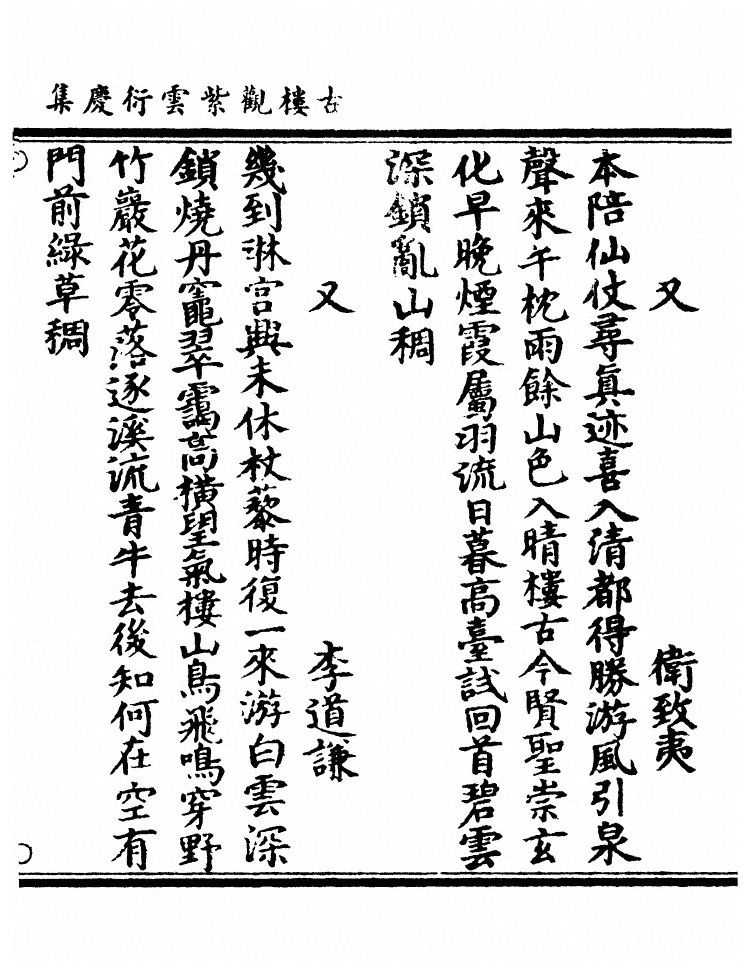 古樓觀紫雲衍慶集
又　衛致夷
本陪仙仗尋真迹喜入清都得勝游風引泉
聲來午枕雨餘山色入晴樓古今賢聖崇玄
化早晚煙霞屬羽流日暮高臺試回首碧雲
深鎖亂山稠
又　李道謙
幾到琳宮興未休杖藜時復一來游白雲深
鎖燒丹竈翠靄高橫望氣樓山鳥飛鳴穿野
竹巖花零落逐溪流青牛去後知何在空有
門前綠草稠